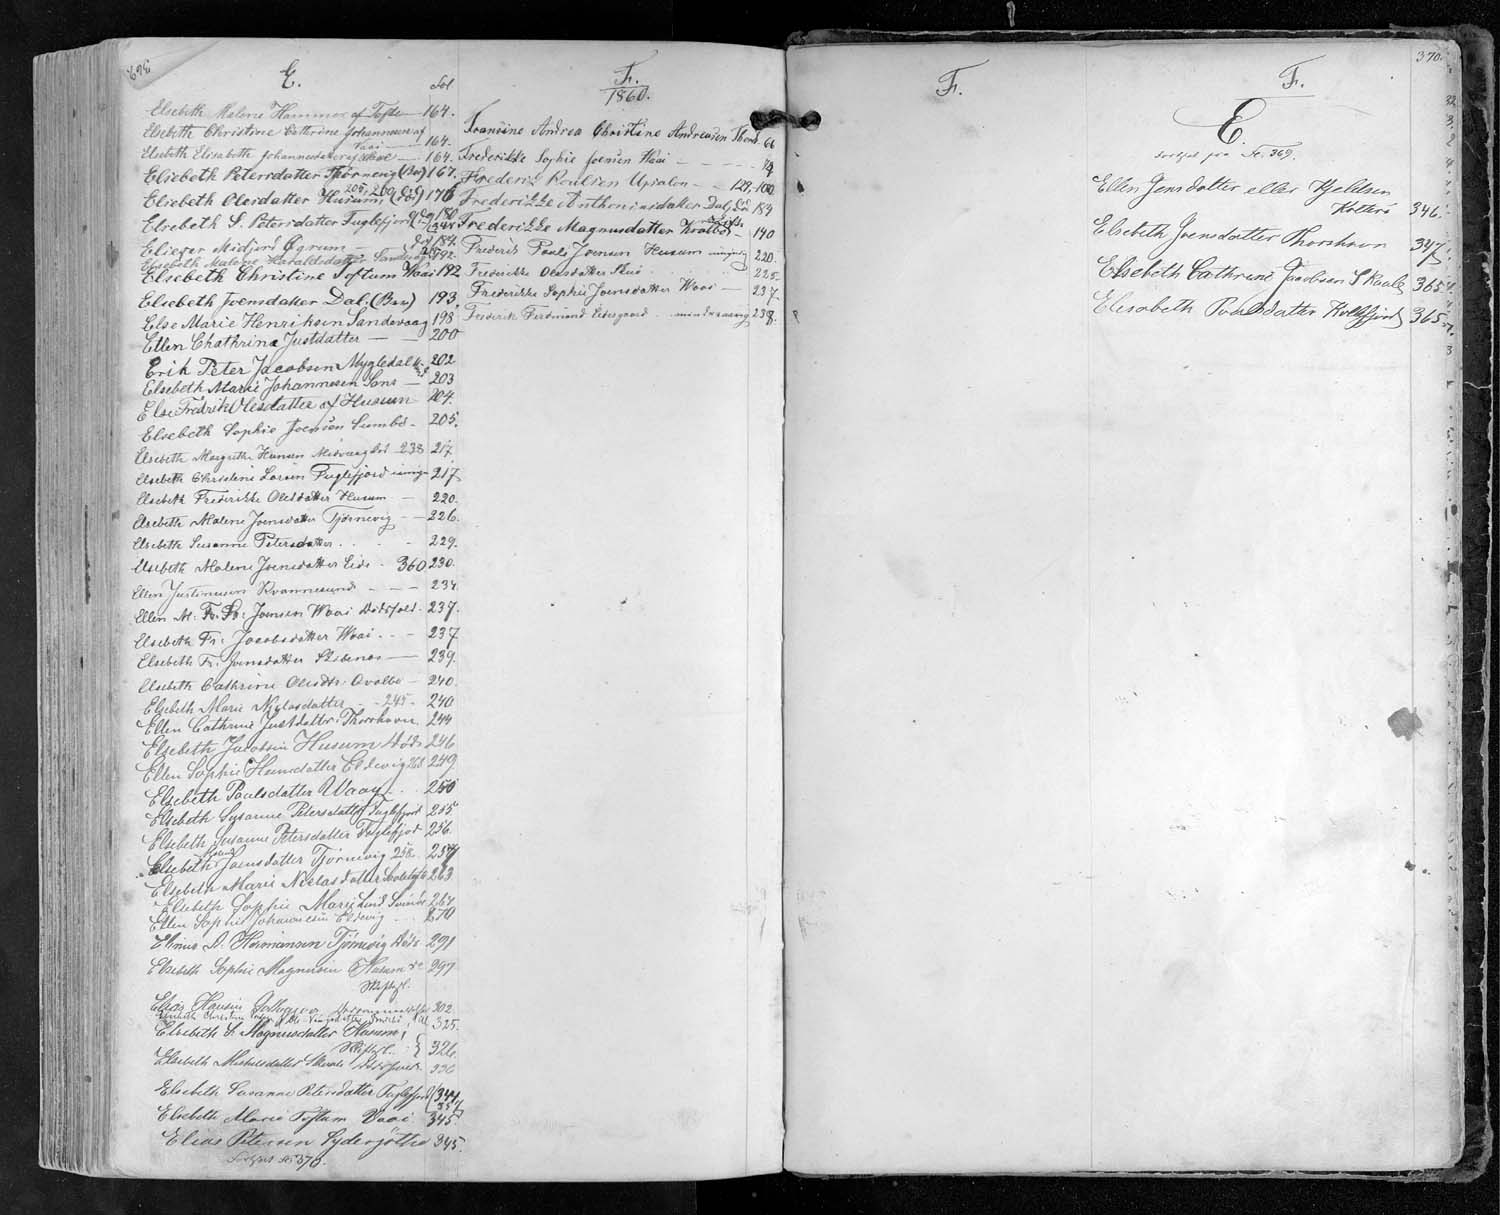 369.
E.
Fol
Elsebeth Malene Hammer af Tofte — 164.
Elsebeth Christine Cathrine Johannesen af
Vaai — 164.
Elsebeth Elisabeth Johannesdatter af — 164.
Elsebeth Petersdatter (Bar) 167.
Elsebeth Olesdatter Husum, 176
205, 200,
Elsebeth S. Petersdatter Fuglefjord 180
Elieser Midjord Øgrum — 184.
Elsebeth Malene Haraldsdatter Sandevaag 192.
Elsebeth Christine Toftum Vaai 192
Elsebeth Joensdatter Dal. (Bar) 193.
Else Marie Henriksen Sandevaag 198
Ellen Chathrina Justdatter — — 200
Erik Peter Jacobsen Mygledal 202
Elsebeth Marie Johannesen — 203
Else Fredrik Olesdatter af Husum 204.
Elsebeth Sophie Joensen Sumbø - 205.
Elsebeth Margrethe Hansen 238 217.
Elsebeth Christine Larsen Fuglefjord 217
Elsebeth Frederikke Olesdatter Husum — 220.
Elsebeth Malene Joensdatter Tjørnevig — 226.
Elsebeth Susanne Petersdatter . . - 229.
Elsebeth Malene Joensdatter Eide - 360 230.
Ellen Justinussen Kvannesund - — 234
Ellen M. Fr. Joensen Waai Dødsfald - 237.
Elsebeth Fr: Jacobsdatter Waai . - - 237
Elsebeth Fr: Joensdatter — 239.
Elsebeth Cathrine Olesdtr. Qvalbø - 240.
Elsebeth Marie Niclasdatter - 245 - 240
Ellen Cathrine Justdatter Thorshavn 244
Elsebeth Jacobsen Husum Døds 246
Ellen Sophie Hansdatter Eldevig 268 249.
Elsebeth Poulsdatter Waay . . 250
Elsebeth Susanne Petersdatter Fuglefjord 255
Elsebeth Susanne Petersdatter Fuglefjord 256.
Elsebeth Joensdatter Tjørnevig 258. 257
Elsebeth Marie Niclasdatter 263
Elsebeth Sophie Marie 267
Ellen Sophie Johannesen Eldevig . . 270
Elinus D. Hermansen Tjørnevig Døds 291
Elsebeth Sophie Magnusen Husum 297
Skiftepl.
Elias Hansen 302.
325.
Elsebeth S. Magnusdatter Husum,
Skiftepl. 326.
Elsebeth Michelsdatter Skaale Dødsfald. 330
Elsebeth Susanne Petersdatter Fuglefjord 344
357
Elsebeth Marie Toftum Vaai 345.
Elias Petersen Sydergøthe 345.
Fortsat S. 370.
F.
1860.
Fransine Andrea Christine Andreasen Thorsh. 66
Frederikke Sophie Joensen Waai — - - - -
Frederik Poulsen - - 129, 100
Frederikke Anthoniusdatter Dal, 189
Frederikke Magnusdatter 140
Frederik Pauli Joensen Husum myndig 220.
Frederikke Olesdatter . . . 225.
Frederikke Sophie Joensdatter Waai — 237.
Frederik Ferdinand Eidesgaard . . mindreaarig 238.
F.
F.
370.
E.
Fortsat fra S. 369.
Ellen Jensdatter eller Kjeldsen
Kolterø 346.
Elsebeth Joensdatter Thorshavn 347.
Elsebeth Cathrine Jacobsen Skaale 365
Elisabeth Poulsdatter Kollefjord 365